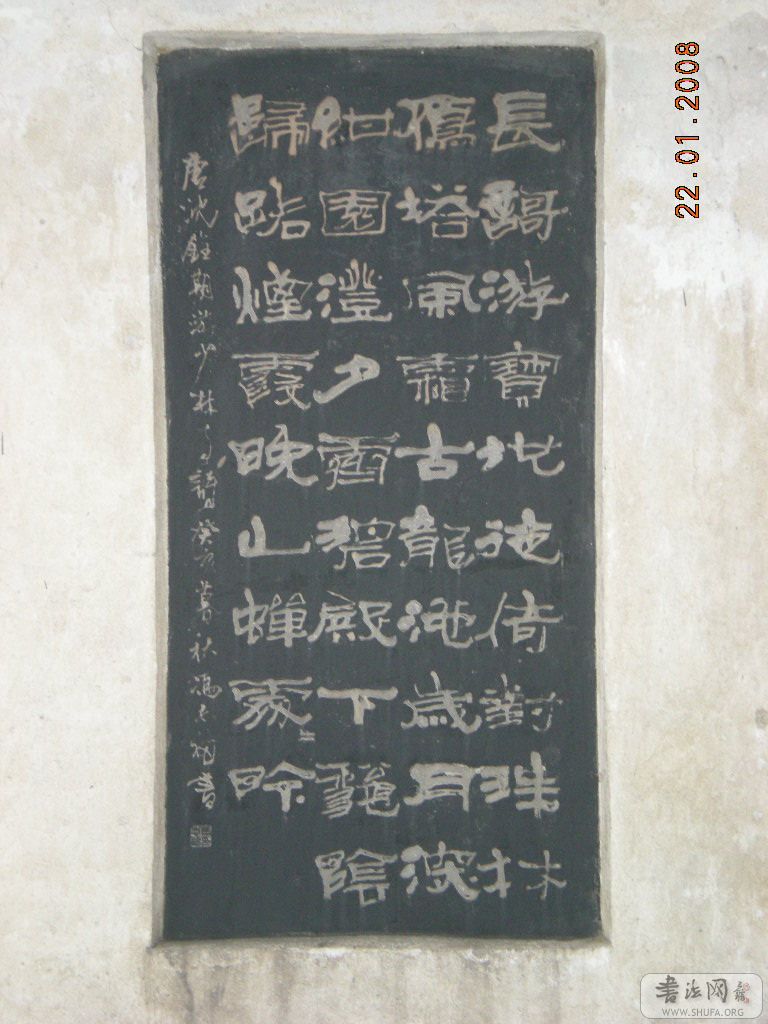 長謌游寶地徙倚對珠林
鴈塔風霜古龍池歲月深
紺園澄夕霽碧殿下龝陰
歸路煙霞晚山蟬處〻吟
唐沈銓期游少林寺詩癸亥暮秋馮書
22.01.2008
书法网
WWW.SHUFA.ORG